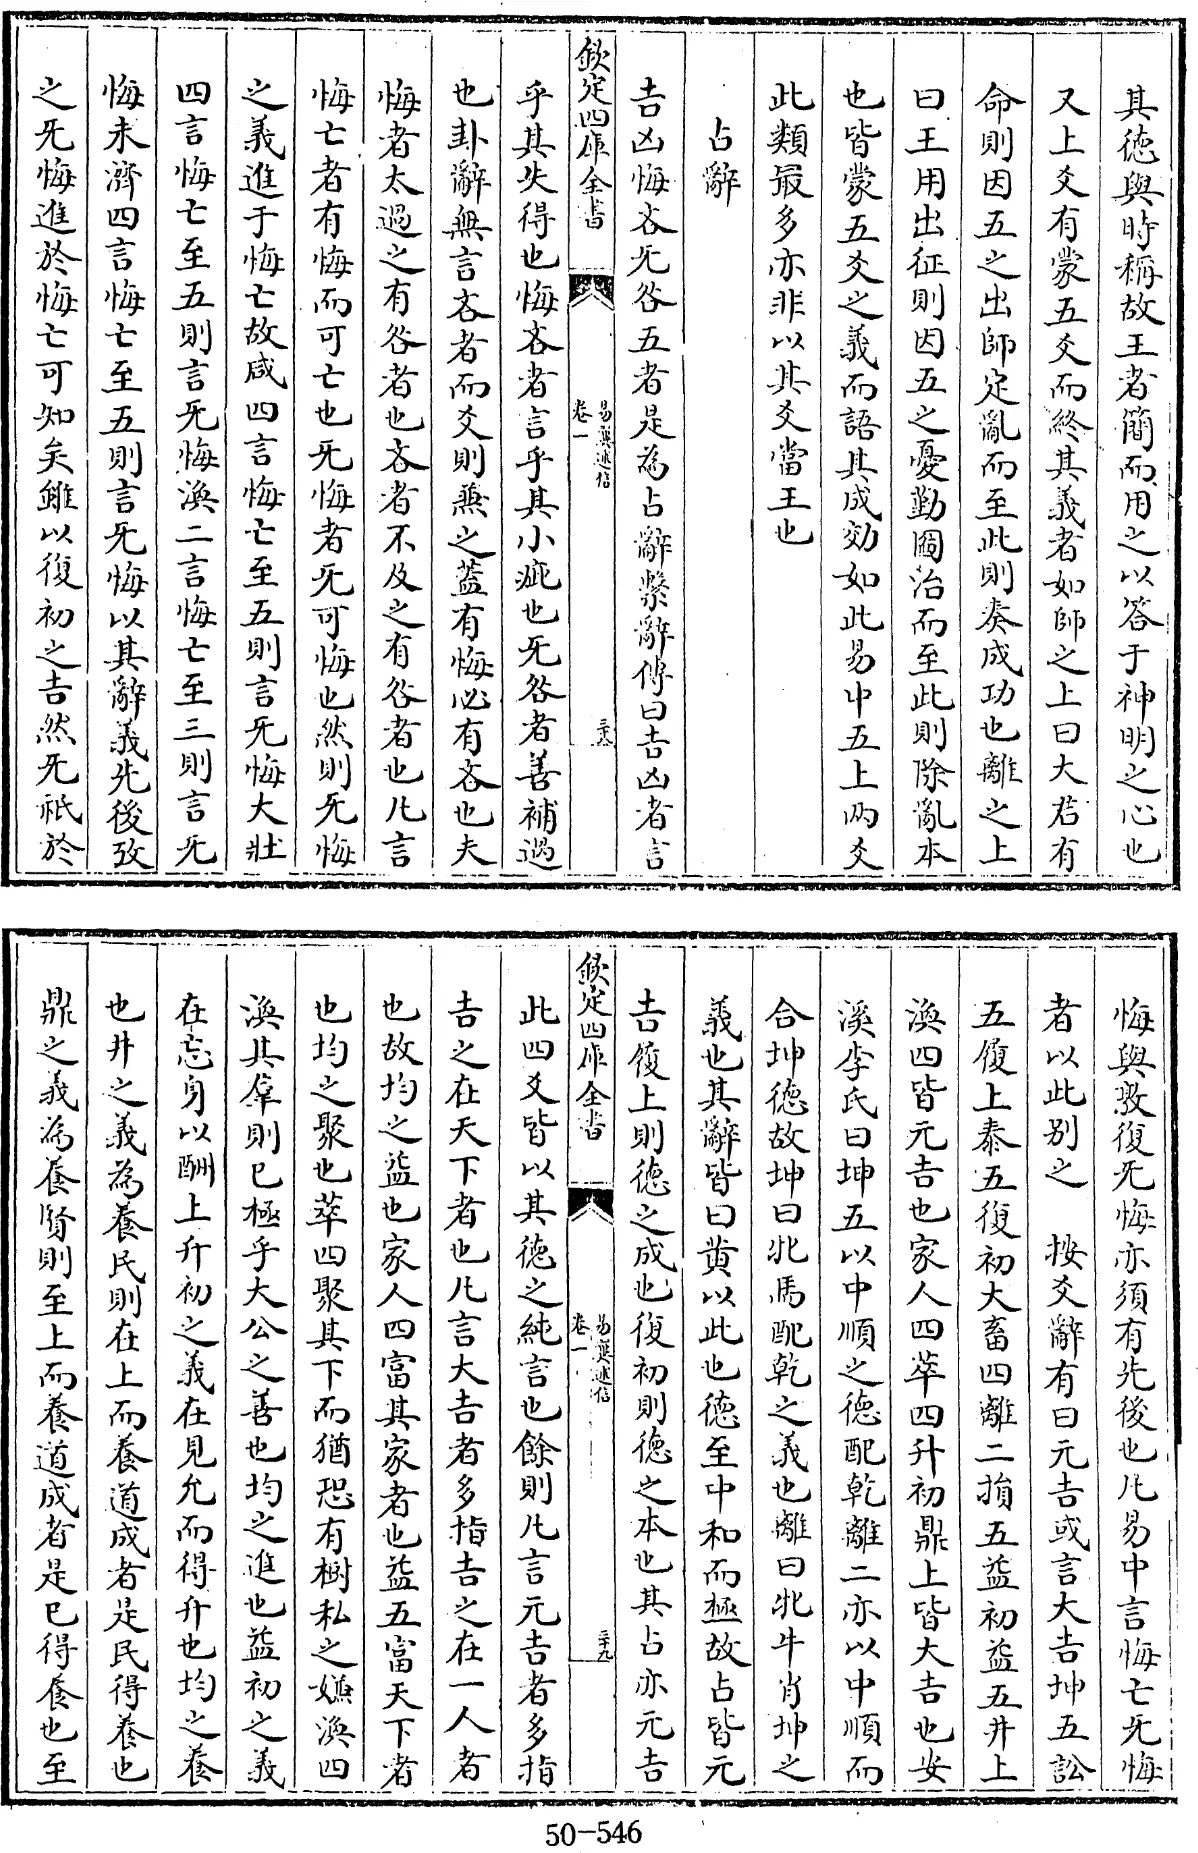 其德與時稱故王者簡而用之以答于神明之心也
又上爻有蒙五爻而終其義者如師之上曰大君有
命則因五之出師定亂而至此則奏成功也離之上
曰王用出征則因五之憂勤圖治而至此則除亂本
也皆蒙五爻之義而語其成効如此易中五上兩爻
此類最多亦非以其爻當王也
占辭
吉凶悔吝无咎五者是為占辭繫辭傳曰吉凶者言
欽定四庫全書
易義述信
卷一
三十八
乎其失得也悔吝者言乎其小疵也无咎者善補過
也卦辭無言吝者而爻則兼之蓋有悔必有吝也夫
悔者太過之有咎者也吝者不及之有咎者也凡言
悔亡者有悔而可亡也无悔者无可悔也然則无悔
之義進于悔亡故咸四言悔亡至五則言无悔大壯
四言悔亡至五則言无悔渙二言悔亡至三則言无
悔未濟四言悔亡至五則言无悔以其辭義先後攷
之无悔進於悔亡可知矣雖以復初之吉然无祇於
悔與敦復无悔亦須有先後也凡易中言悔亡无悔
者以此别之 按爻辭有曰元吉或言大吉坤五訟
五履上泰五復初大畜四離二損五益初益五井上
渙四皆元吉也家人四萃四升初鼎上皆大吉也安
溪李氏曰坤五以中順之德配乾離二亦以中順而
合坤德故坤曰牝馬配乾之義也離曰牝牛肖坤之
義也其辭皆曰黄以此也德至中和而極故占皆元
吉履上則德之成也復初則德之本也其占亦元吉
欽定四庫全書
易義述信
卷一
三十九
此四爻皆以其德之純言也餘則凡言元吉者多指
吉之在天下者也凡言大吉者多指吉之在一人者
也故均之益也家人四富其家者也益五富天下者
也均之聚也萃四聚其下而猶恐有樹私之嫌渙四
渙其羣則已極乎大公之善也均之進也益初之義
在忘身以酬上升初之義在見允而得升也均之養
也井之義為養民則在上而養道成者是民得養也
鼎之義為養賢則至上而養道成者是已得養也至
50-546